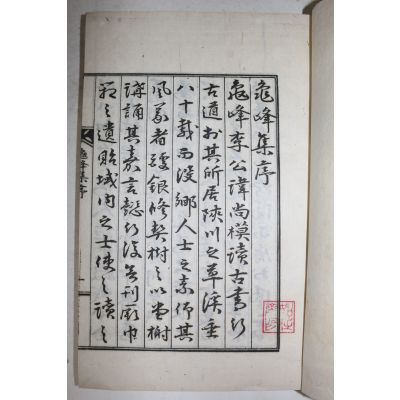 龜峰集序
龜峰李公諱尚模讀古書行
古道於其所居陜川之草溪垂
八十載而沒鄉人士之素仰其
風義者醵銀修契樹之以堂樹
講誦其嘉言懿行後若刊厥巾
箱之遺貽域內之士使之讀之
龜峰集序